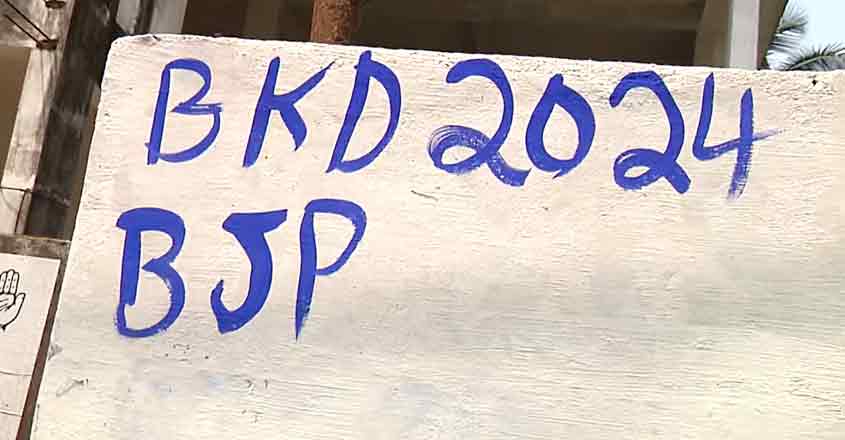 BKD 2024
BJP